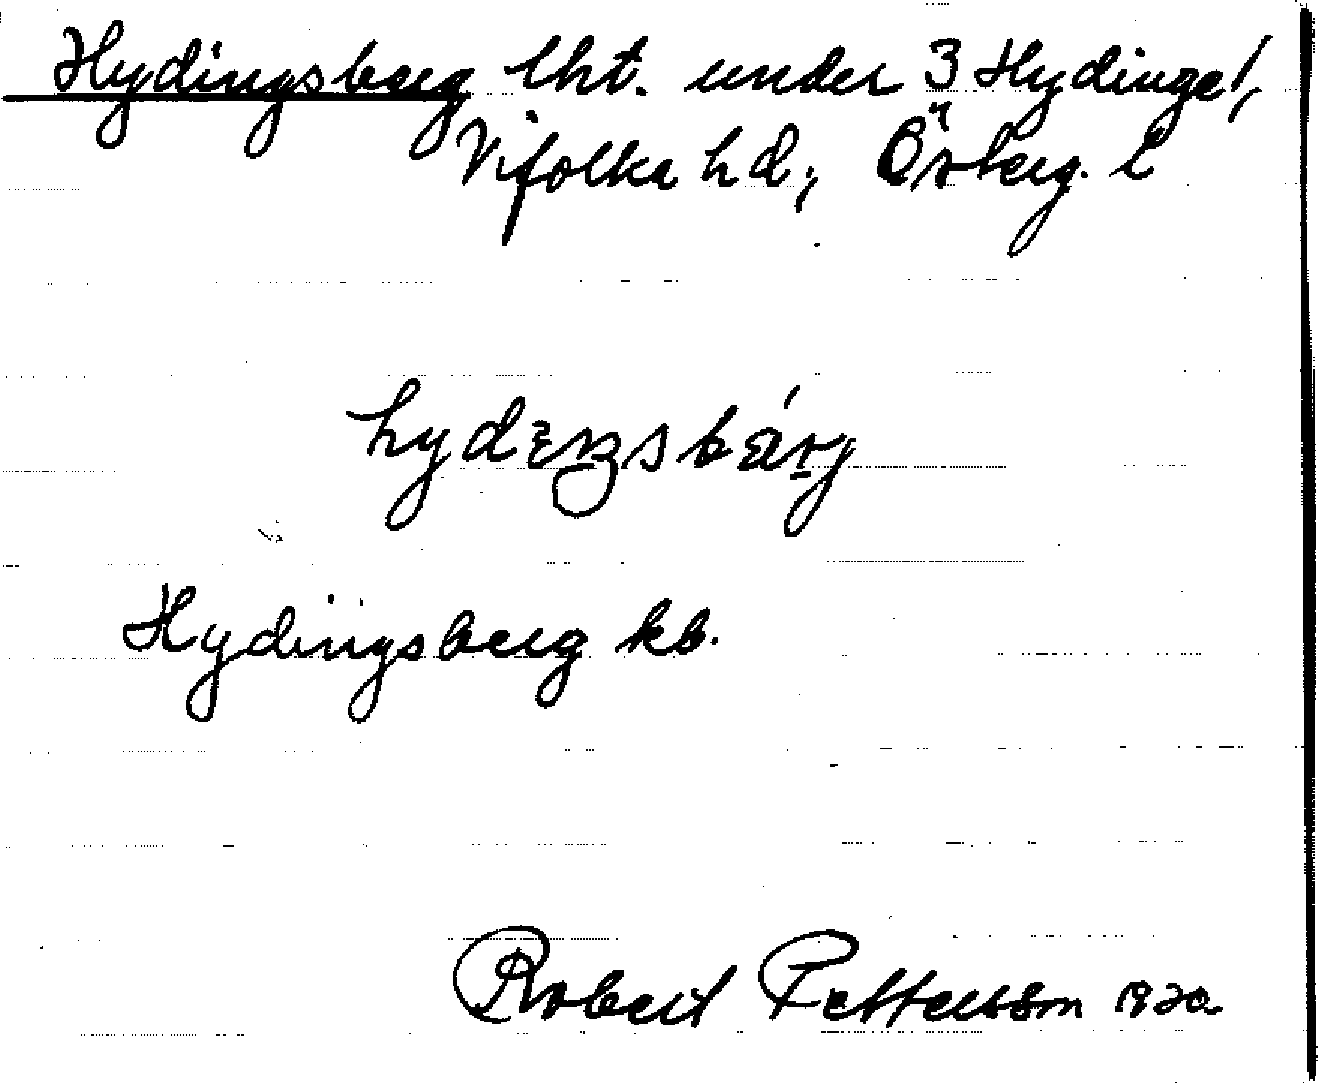 Hydingsberg lht. under 3 Hydinge/,
Vifolka hd, Österg. l
hydeŋsbárj
Hydingsberg kb.
Robert Pettersson 1920